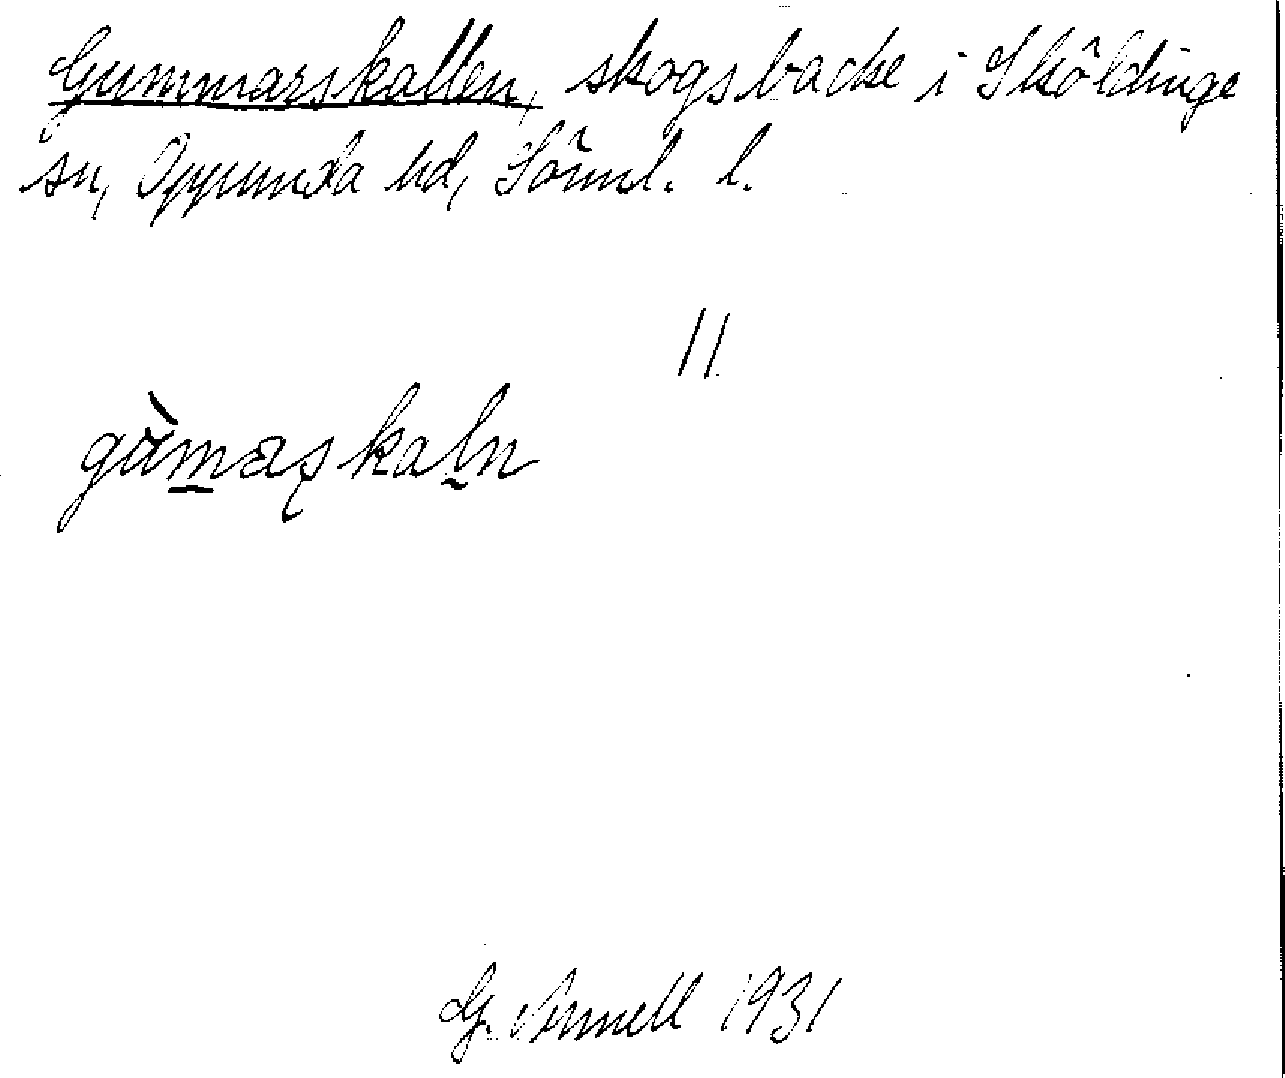 Gummarskallen, skogsbacke i Sköldinge
sn, Oppunda hd, Sörml. l.
11
gùmaʂkaln
G. Annell 1931